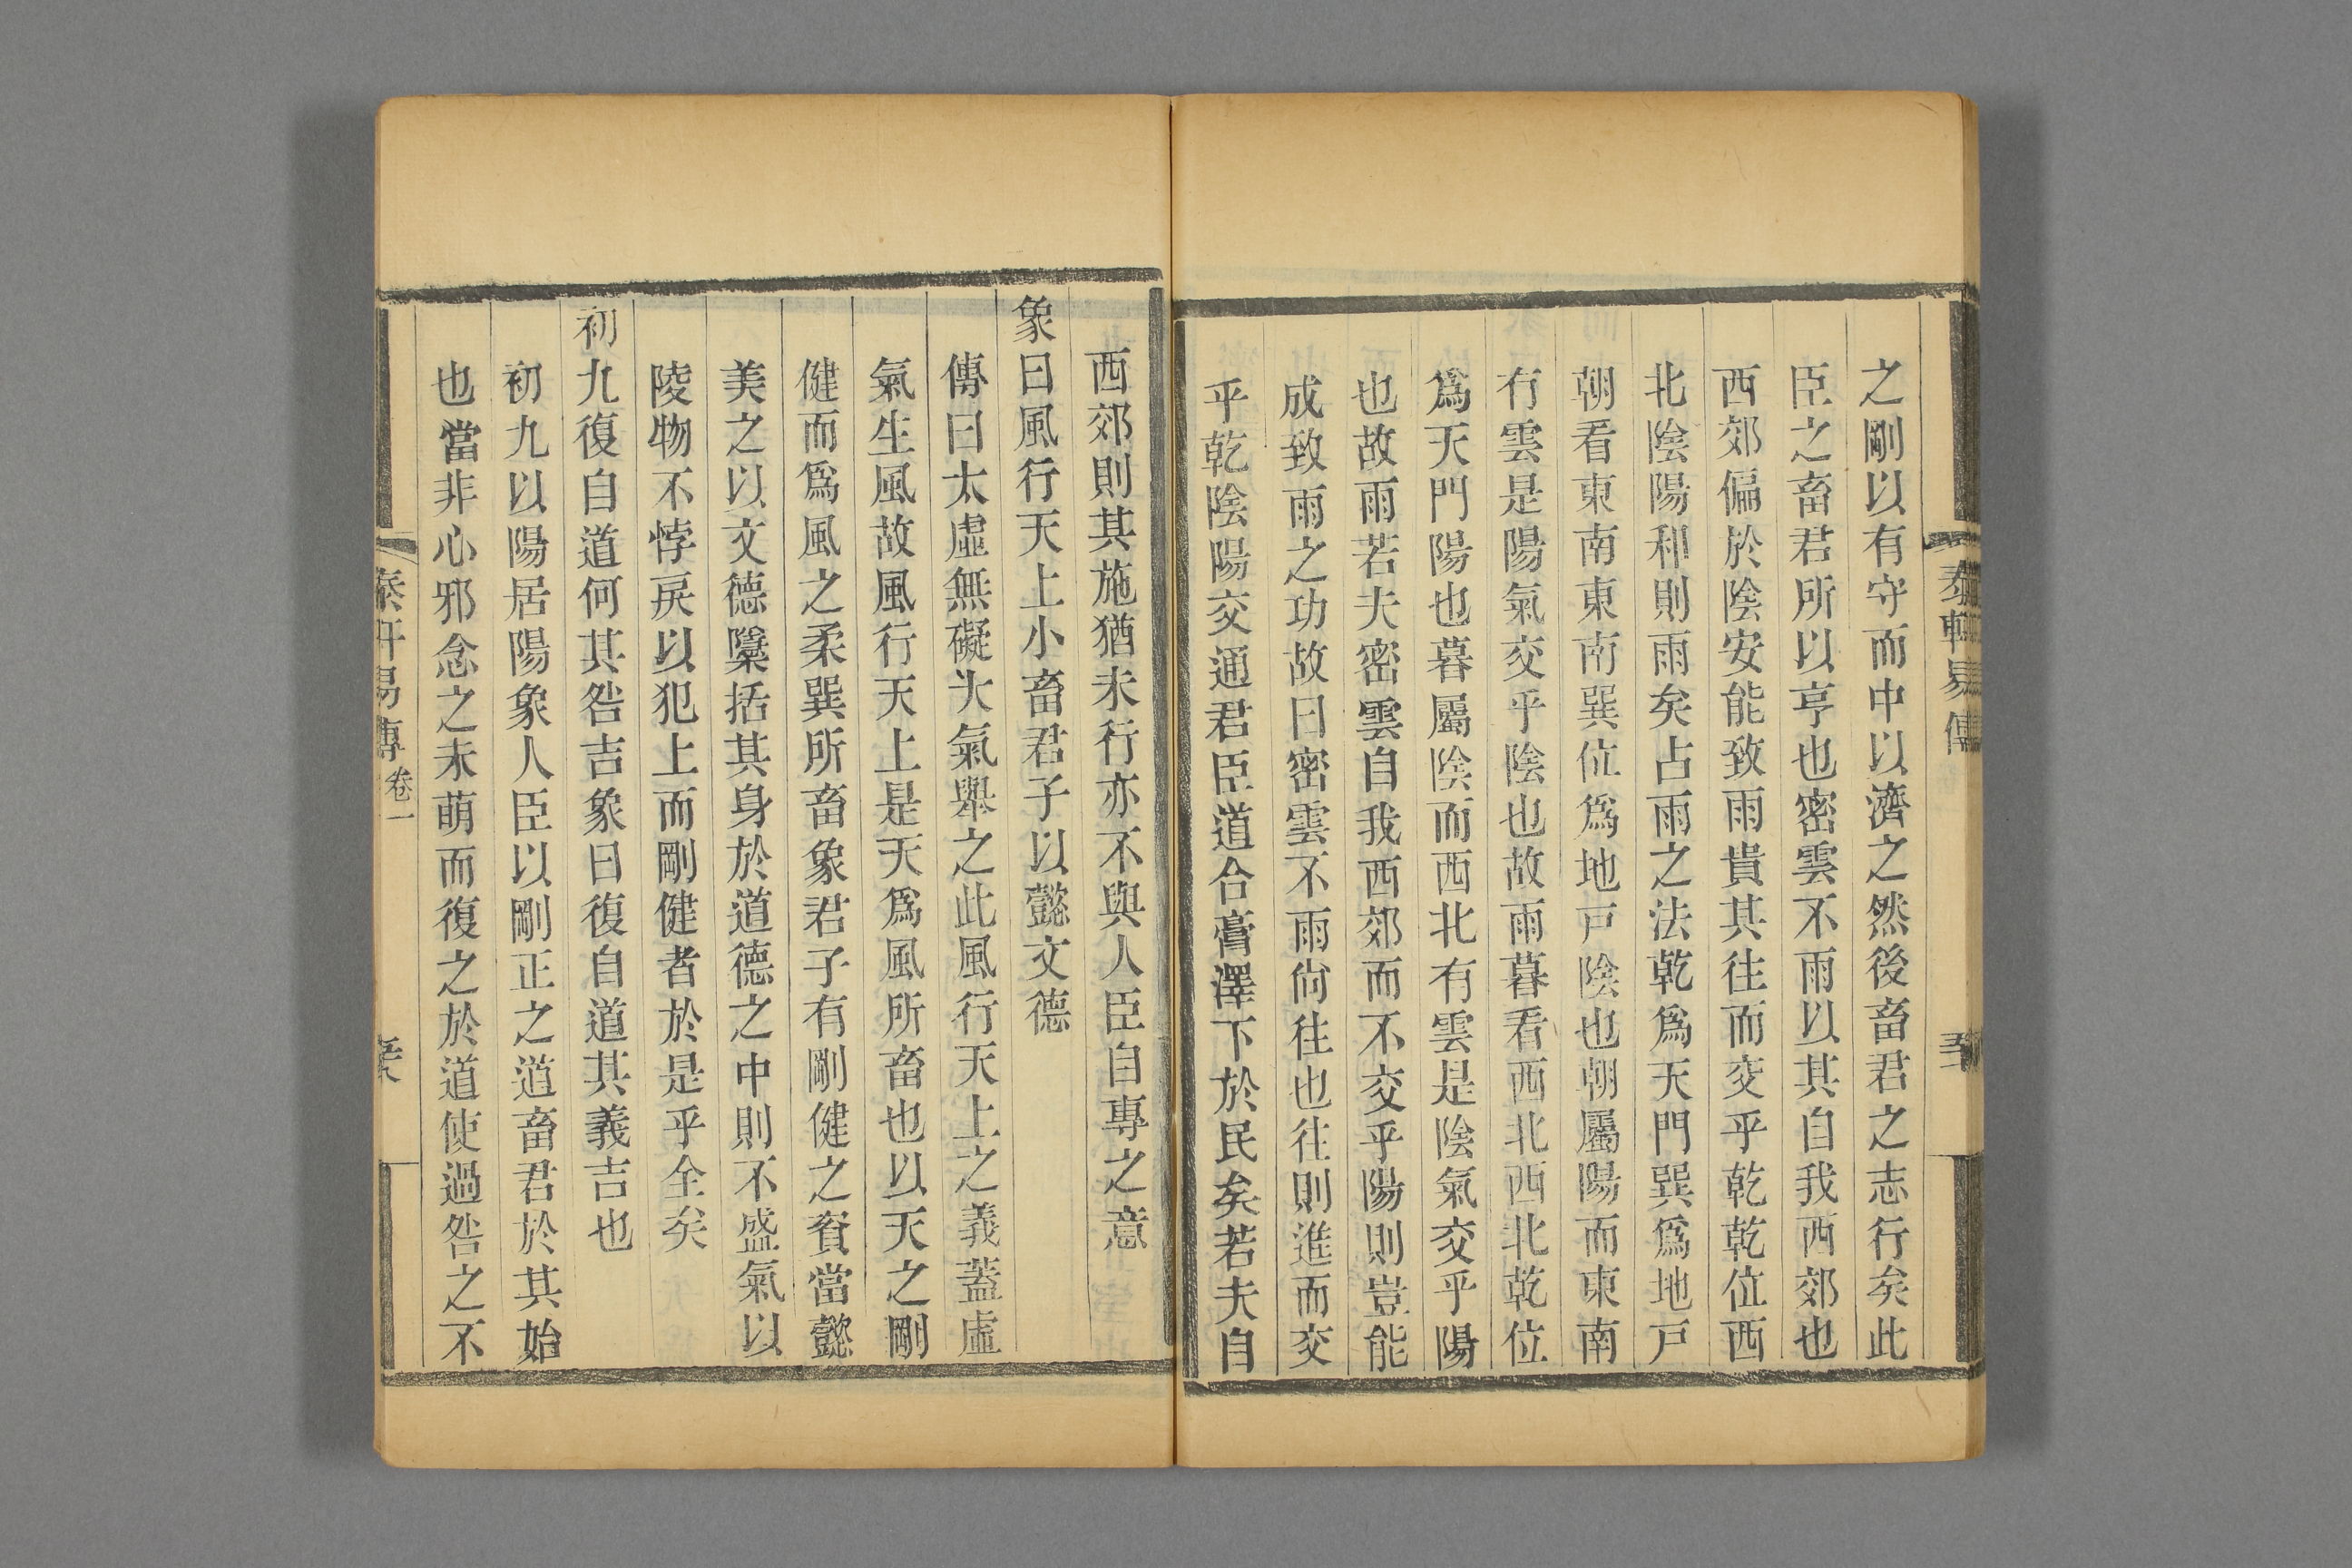 泰軒易傳
之剛以有守而中以濟之然後畜君之志行矣此
臣之畜君所以亨也密雲不雨以其自我西郊也
西郊偏於陰安能致雨貴其往而交乎乾乾位西
北陰陽和則雨矣占雨之法乾爲天門巽爲地戸
朝看東南東南巽位爲地戸陰也朝屬陽而東南
有雲是陽氣交乎陰也故雨暮看西北西北乾位
爲天門陽也暮屬陰而西北有雲是陰氣交乎陽
也故雨若夫密雲自我西郊而不交乎陽則豈能
成致雨之功故曰密雲不雨尙往也往則進而交
乎乾陰陽交通君臣道合膏澤下於民矣若夫自
西郊則其施猶未行亦不與人臣自專之意
象曰風行天上小畜君子以懿文德
傳曰太虛無礙大氣舉之此風行天上之義蓋虛
氣生風故風行天上是天爲風所畜也以天之剛
健而爲風之柔巽所畜象君子有剛健之資當懿
美之以文德檃括其身於道德之中則不盛氣以
陵物不悖戾以犯上而剛健者於是乎全矣
初九復自道何其咎吉象曰復自道其義吉也
初九以陽居陽象人臣以剛正之道畜君於其始
也當非心邪念之未萌而復之於道使過咎之不
泰軒易傳 卷一